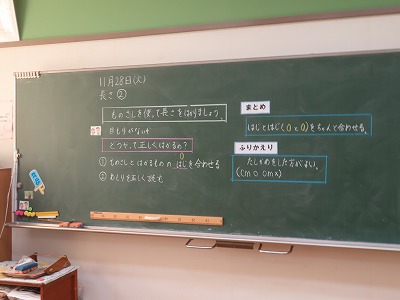 11月28日(火)
長さ②
ものさしを使って長さをはかりましょう
目もりがないぞ
どうやって正しくはかるの?
0
①ものさしとはかるものの はじを合わせる
②めもりを正しく読む
まとめ
はじとはじ(0と0)をちゃんと合わせる。
ふりかえり
たしかめをした方がよい。
(cm○ cmx)